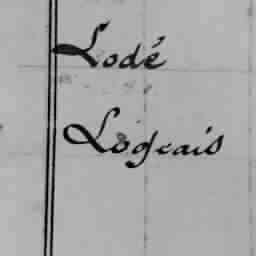 Lodé
Logeais